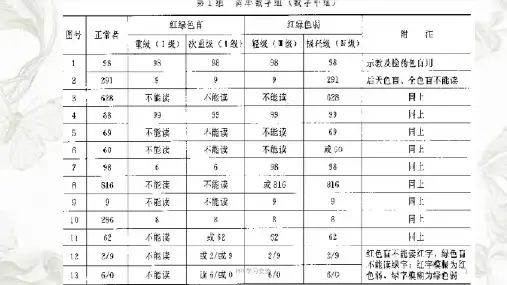 第 1 组 简单数字组(数字甲组)
图号 正常者 红绿色盲 红绿色弱 附 注
重级(Ⅰ级) 次重级(Ⅱ级) 轻级(Ⅲ级) 极轻级(Ⅳ级)
1 98 98 98 98 98 示教及检伪色盲用
2 291 9 9 9 291 后天色盲、全色盲不能读
3 628 不能读 不能读 不能读 628 同上
4 88 99 99 99 99 同上
5 69 不能读 不能读 不能读 69 同上
6 60 不能读 不能读 不能读 或 60 同上
7 98 6 6 98 98 同上
8 816 不能读 不能读 或 816 816 同上
9 9 不能读 不能读 9 9 同上
10 286 8 8 8 8 同上
11 62 不能读 或 62 62 62 同上
12 2/9 不能读 或 2/或 9 2/9 2/9 红色盲不能读红字,绿色盲
不能读绿字;红字模糊为红
13 6/0 不能读 读 6/或 0 6/0 6/0 色弱、绿字模糊为绿色弱